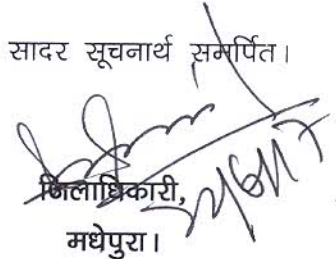 सादर सूचनार्थ समर्पित।
जिलाधिकारी,
मधेपुरा।